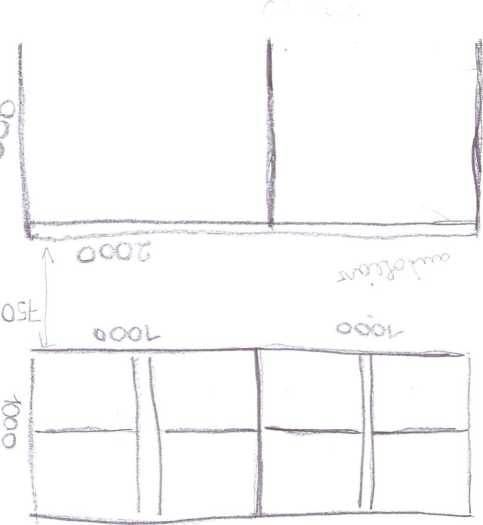 900
2000
750
1000 1000
1000